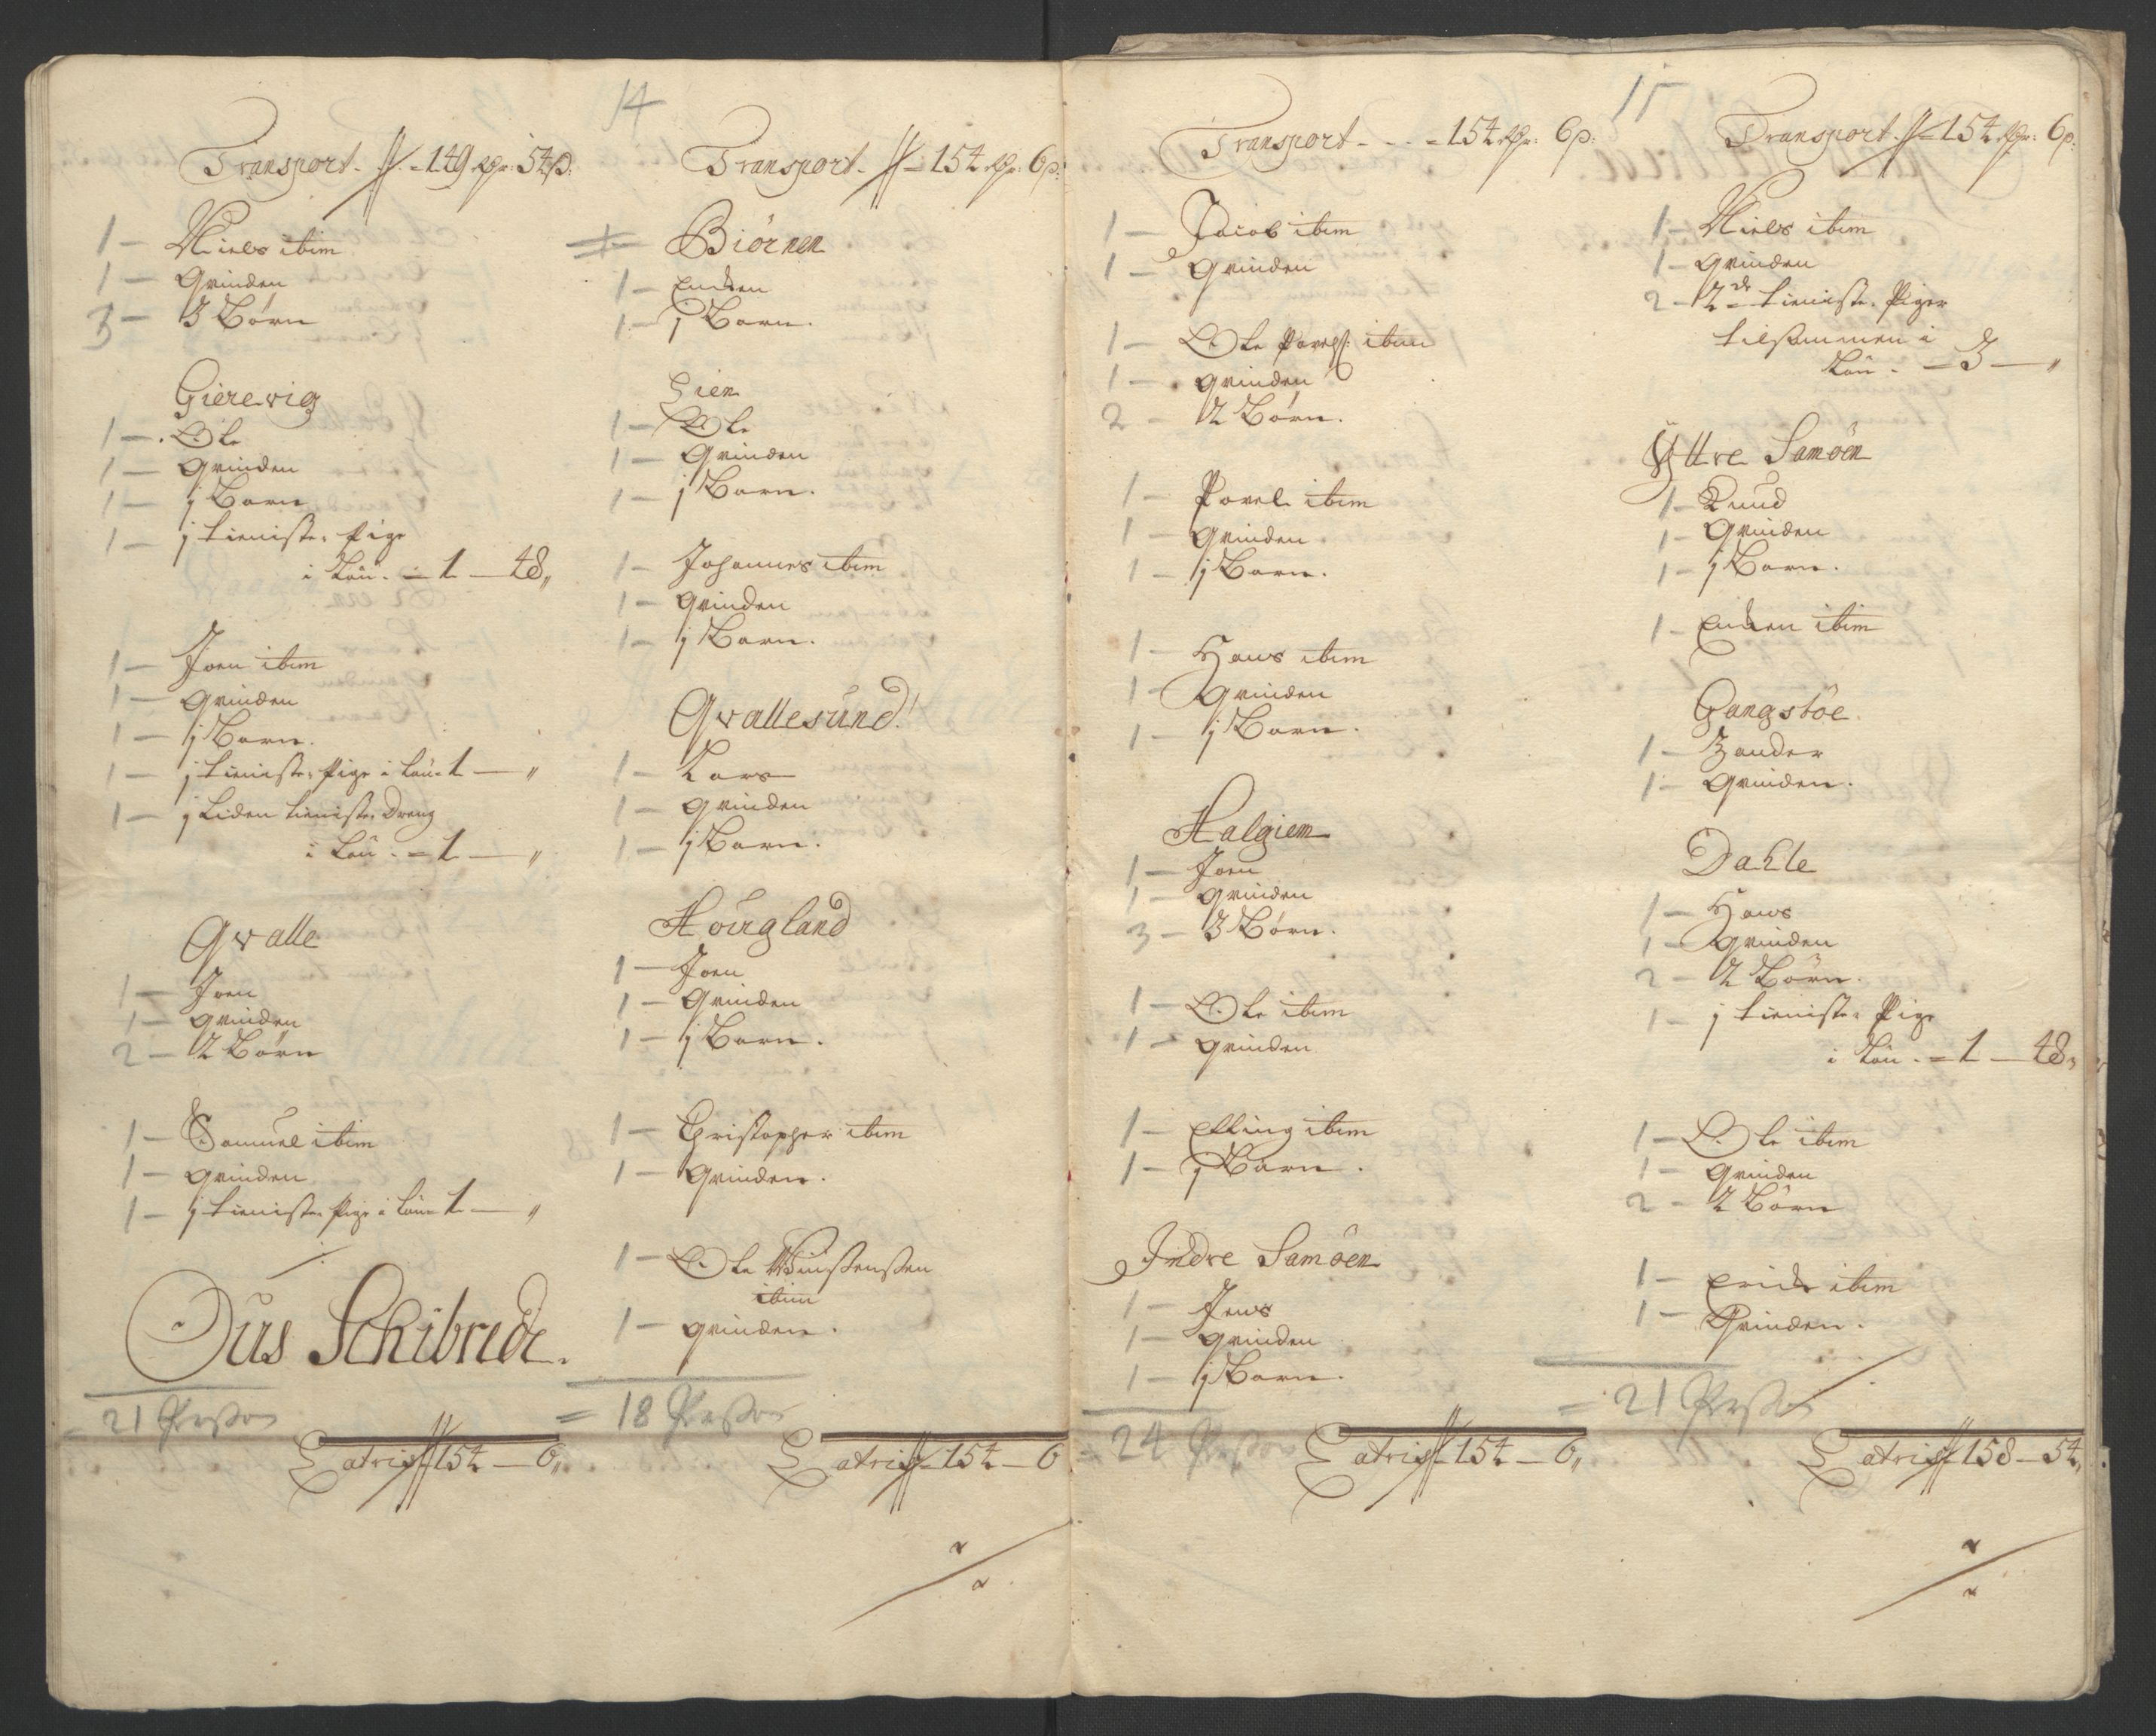 14
Transport. = 149 rdr: 54 β:
1 — Niels ibim
1 — Qvinden
3 — 3 Børn
Gierevig
1 — Ole
1 — Qvinden
1 — j Barn
1 — j tieniste Pige
i Løn. = 1 — 48,,
1 — Joen ibim
1 — Qvinden
1 — j Barn.
1 — j tieniste Pige i Løn = 1 — ,,
1 — j Liden tieniste Dreng
i Løn. = 1 — ,,
Qvalle
1 — Joen
1 — Qvinden
2 — 2 Børn
1 — Samuel ibim
1 — Qvinden
1 — j tieniste Pige i Løn = 1 — ,,
Ous Schibrede.
= 21 Persoen
Latris 154 — 6,,
Transport. = 154 rdr: 6 β:
Biörnen
1 — Encken
1 — j Barn.
Lien
1 — Ole
1 — Qvinden
1 — j Barn.
1 — Johannes ibim
1 — Qvinden
1 — j Barn.
Qvallesund!
1 — Lars
1 — Qvinden
1 — j Barn.
Hougland
1 — Joen
1 — Qvinden
1 — j Barn.
1 — Christopher ibim
1 — Qvinden.
1 — Ole
ibim
1 — Qvinden.
= 18 Persoen
Latris = 154 — 6
15
Transport - . . = 154 rdr: 6 β:
1 — Jacob ibim
1 — Qvinden
1 — Ole Povels: ibim
1 — Qvinden
2 — 2 Børn.
1 — Povel ibim
1 — Qvinden
1 — j Barn.
1 — Hans ibim
1 — Qvinden
1 — j Barn.
Halgiem
1 — Joen
1 — Qvinden
3 — 3 Børn.
1 — Ole ibim
1 — Qvinden
1 — Elling ibim
1 — j Barn.
Indre Samöen
1 — Jens
1 — Qvinden
1 — j Barn.
= 24 Persoen
Latris = 154 — 6,,
Transport. = 154 rdr: 6 β:
1 — Niels ibim
1 — Qvinden
2 — 2de tieniste Piger
tilsammen i
Løn. = 3 — ,,
Yttre Samöen
1 — Knud
1 — Qvinden
1 — j Barn.
1 — Encken ibim
Gangstöe.
1 — Zander
1 — Qvinden.
Dahle
1 — Hans
1 — Qvinden
2 — 2 Børn.
1 — j tieniste Pige
i Løn. = 1 — 48,,
1 — Ole ibim
1 — Qvinden
2 — 2 Børn
1 — Erick ibim
1 — Qvinden.
= 21 Persoen
Latris = 158 — 54,,